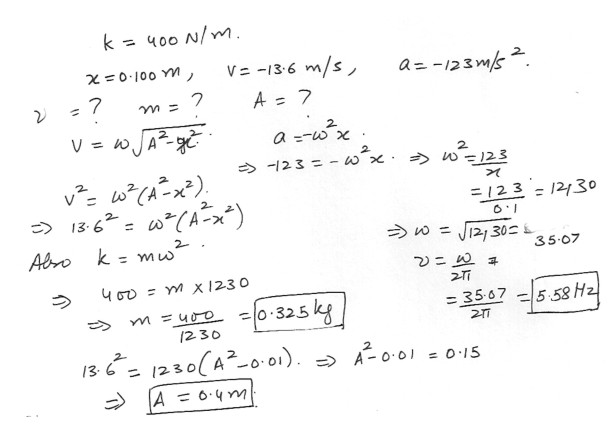 k = 400 N/m.
x = 0.100 m, v = -13.6 m/s, a = -123 m/s².
ν = ? m = ? A = ?
v = ω√(A²-x²) a = -ω²x.
⇒ -123 = -ω²x. ⇒ ω² = 123/x
v² = ω²(A²-x²). = 123/0.1 = 12,30
⇒ 13.6² = ω²(A²-x²)
⇒ ω = √12,30 = 35.07
Also k = mω².
ν = ω/2π
⇒ 400 = m x 1230
= 35.07/2π = 5.58 Hz
⇒ m = 400/1230 = 0.325 kg
13.6² = 1230(A²-0.01). ⇒ A²-0.01 = 0.15
⇒ A = 0.4 m